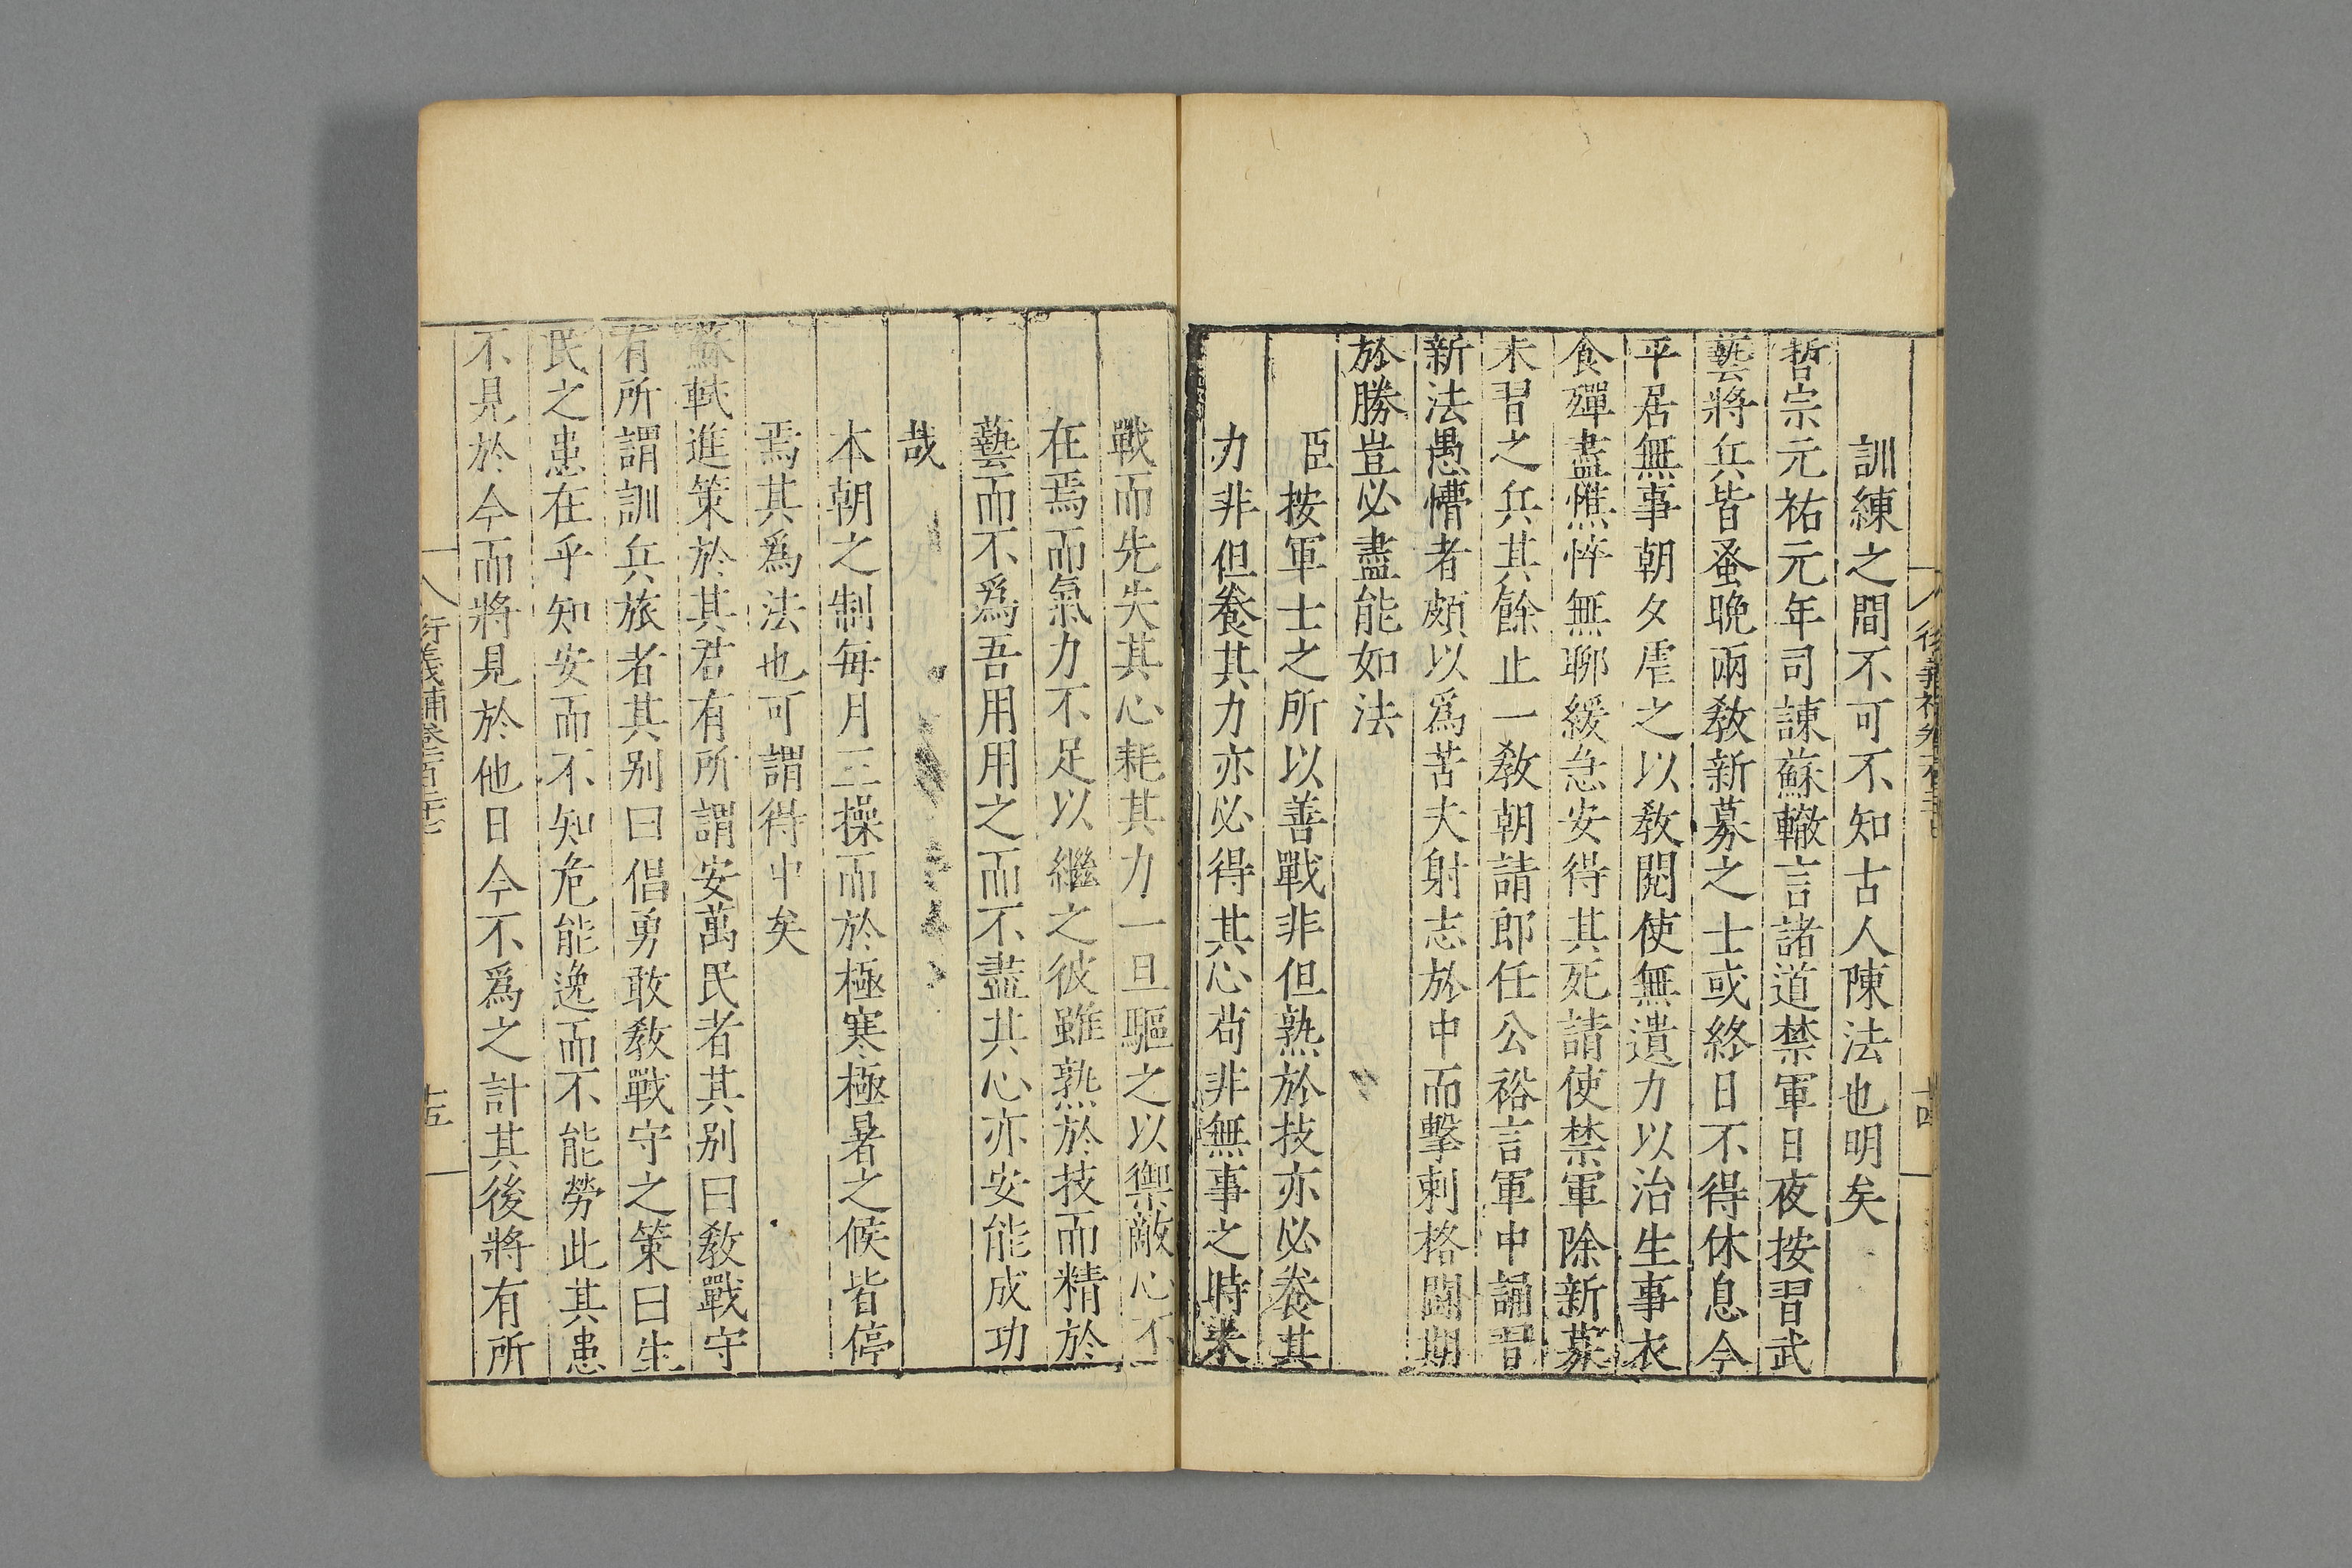 訓練之間不可不知古人陳法也明矣
哲宗元祐元年司諫蘇轍言諸道禁軍日夜按習武
藝將兵皆蚤晚兩教新募之士或終日不得休息今
平居無事朝夕虐之以教閱使無遺力以治生事衣
食殫盡憔悴無聊緩急安得其死請使禁軍除新募
未習之兵其餘止一教朝請郎任公裕言軍中誦習
新法愚懵者頗以爲苦夫射志於中而擊刺格鬭期
於勝豈必盡能如法
臣按軍士之所以善戰非但熟於技亦必養其
力非但養其力亦必得其心苟非無事之時未
戰而先失其心耗其力一旦驅之以禦敵心不
在焉而氣力不足以繼之彼雖熟於技而精於
藝而不爲吾用用之而不盡其心亦安能成功
哉
本朝之制每月三操而於極寒極暑之候皆停
焉其爲法也可謂得中矣
蘇軾進策於其君有所謂安萬民者其别曰教戰守
有所謂訓兵旅者其别曰倡勇敢教戰守之策曰生
民之患在乎知安而不知危能逸而不能勞此其患
不見於今而將見於他日今不爲之計其後將有所
衍義補卷一百三十七
十五